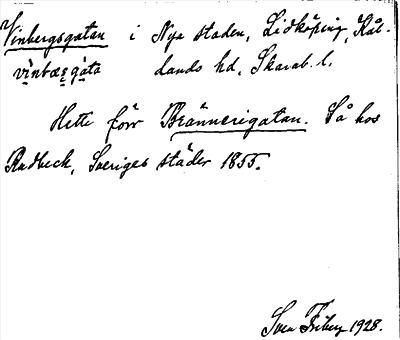 Vinbergsgatan i Nya staden, Lidköping, Kål-
vinbærgata lands hd, Skarab. l.
Hette förr Brännerigatan. Så hos
Rudbeck, Sveriges städer 1855.
Sven Friberg 1928.